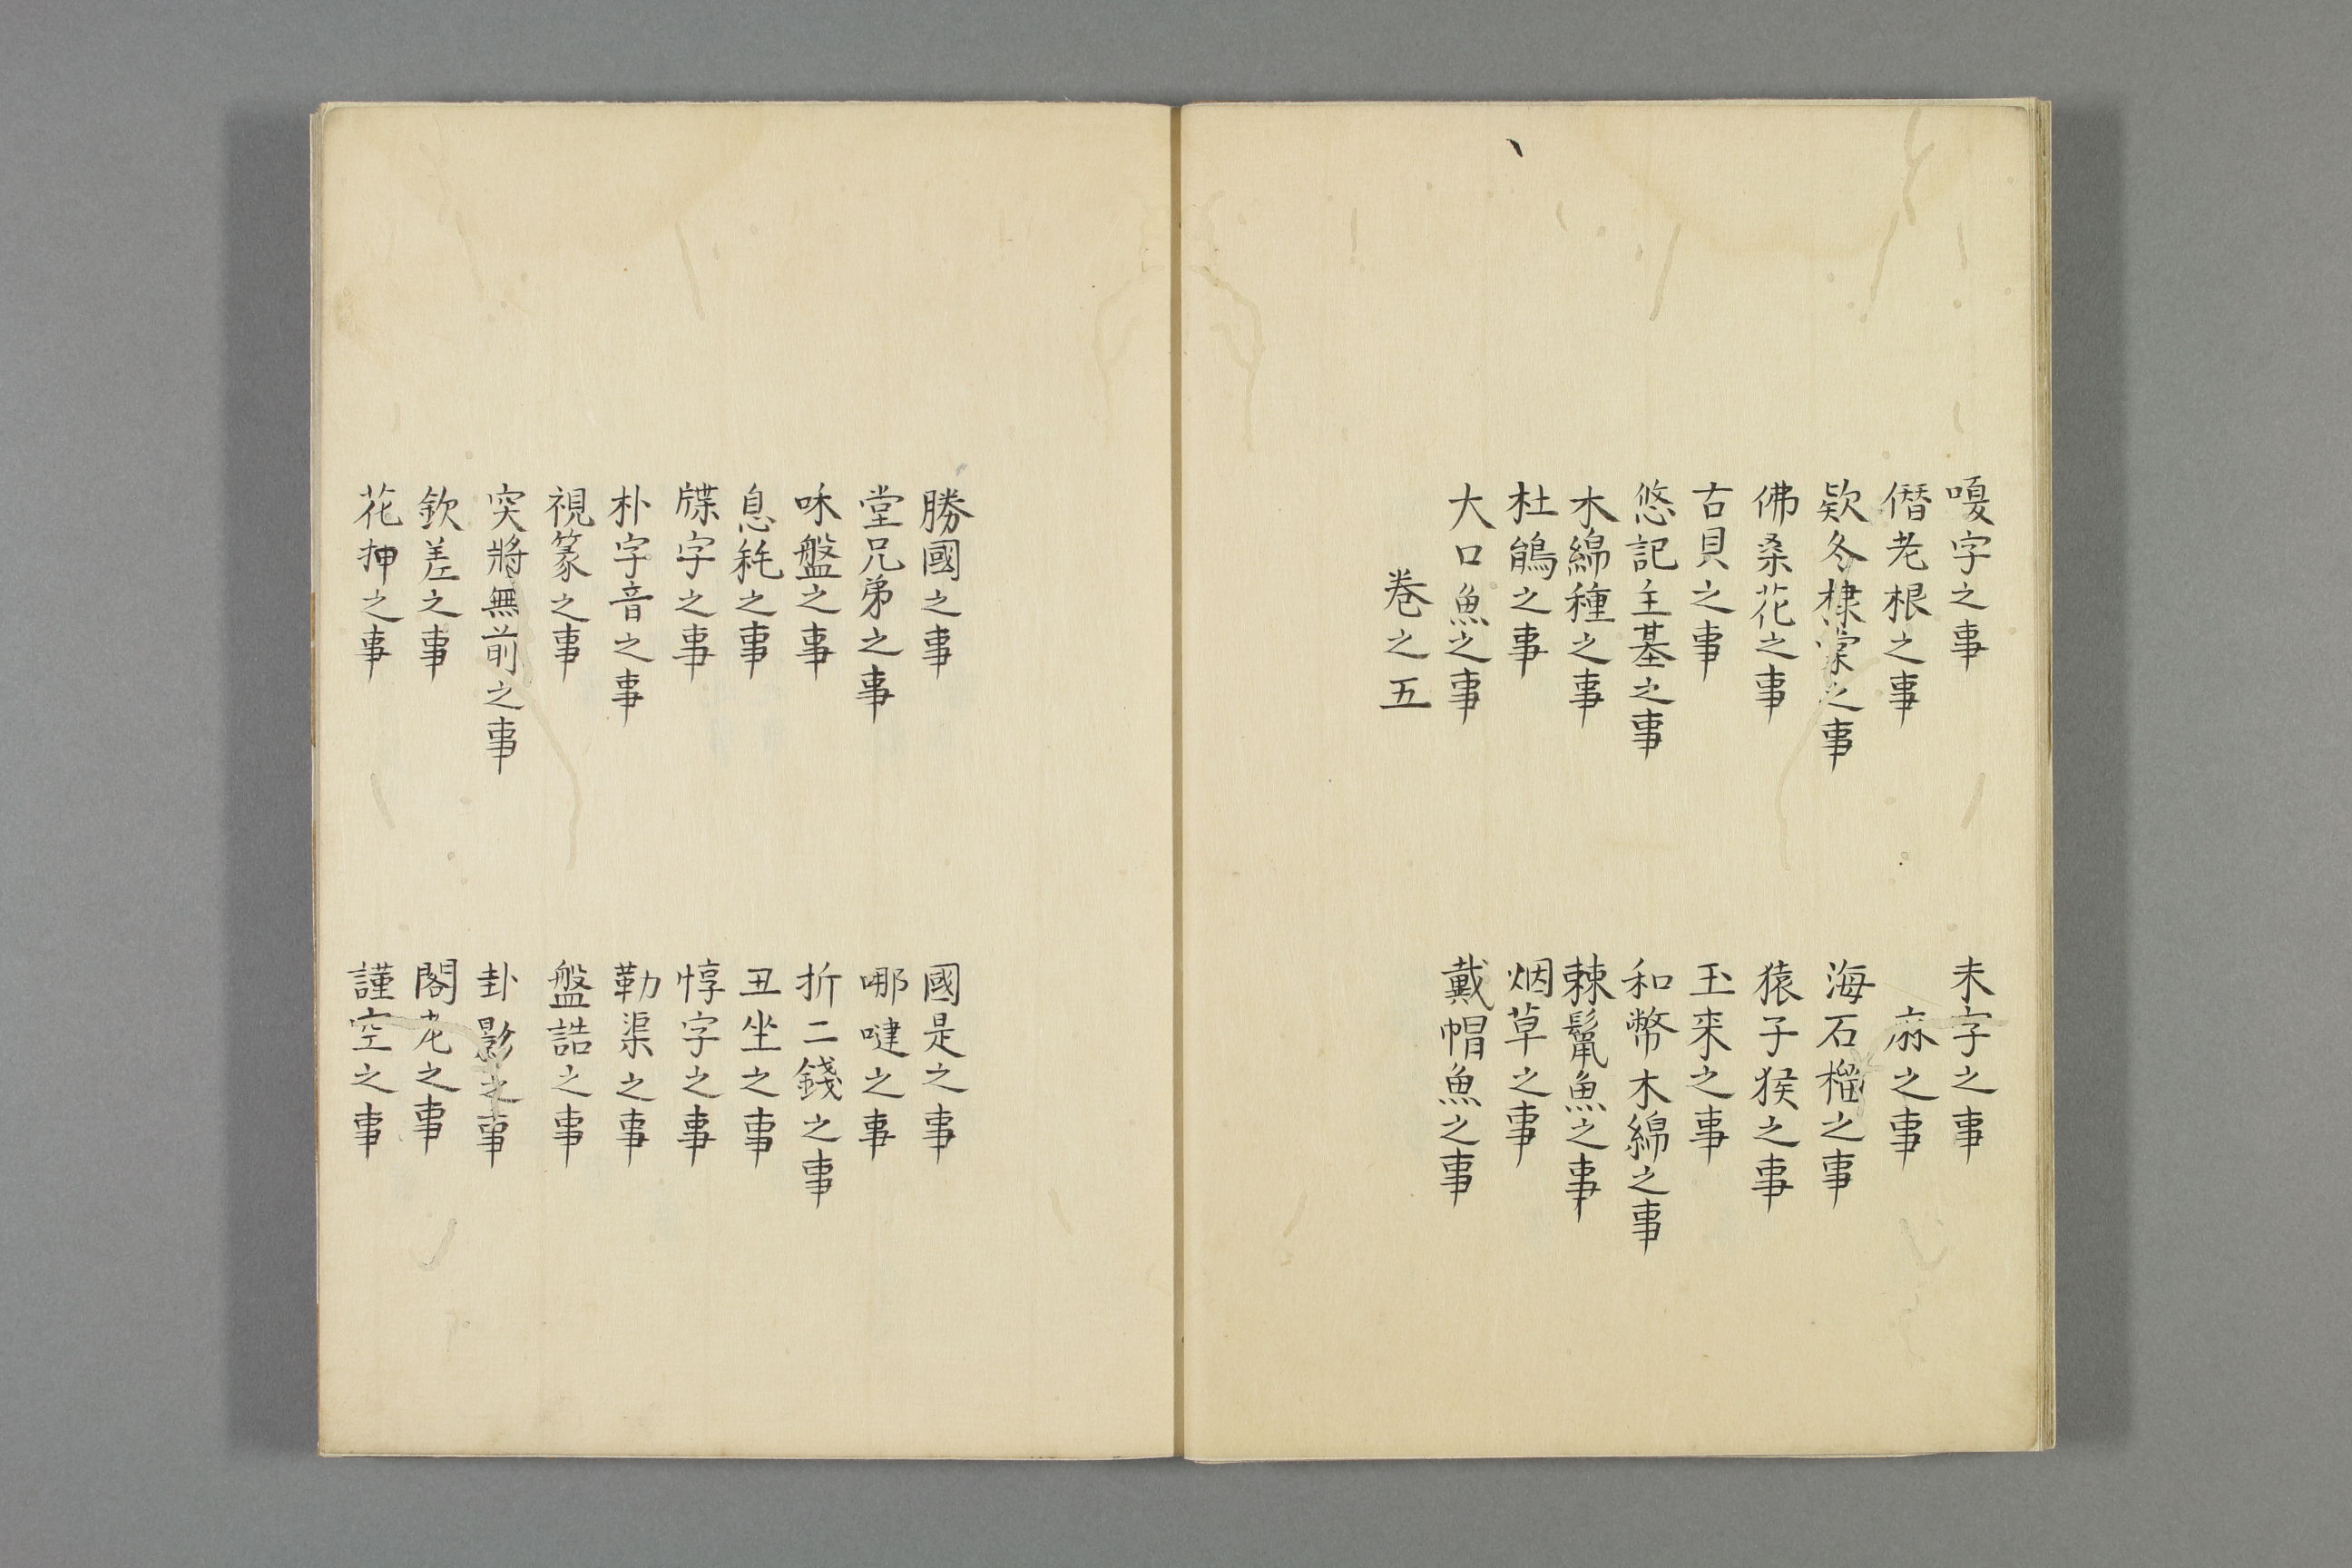 嗄字之事
未字之事
僭老根之事
麻之事
欵冬棣棠之事
海石榴之事
佛桑花之事
猿子猴之事
古貝之事
玉来之事
悠記主基之事
和幣木綿之事
木綿種之事
棘鬣魚之事
杜鵑之事
烟草之事
大口魚之事
戴帽魚之事
巻之五
勝國之事
國是之事
堂兄弟之事
哪噠之事
咊盤之事
折二錢之事
息耗之事
丑坐之事
牒字之事
惇字之事
朴字音之事
勒渠之事
視篆之事
盤詰之事
突將無前之事
卦影之事
欽差之事
閣老之事
花押之事
謹空之事